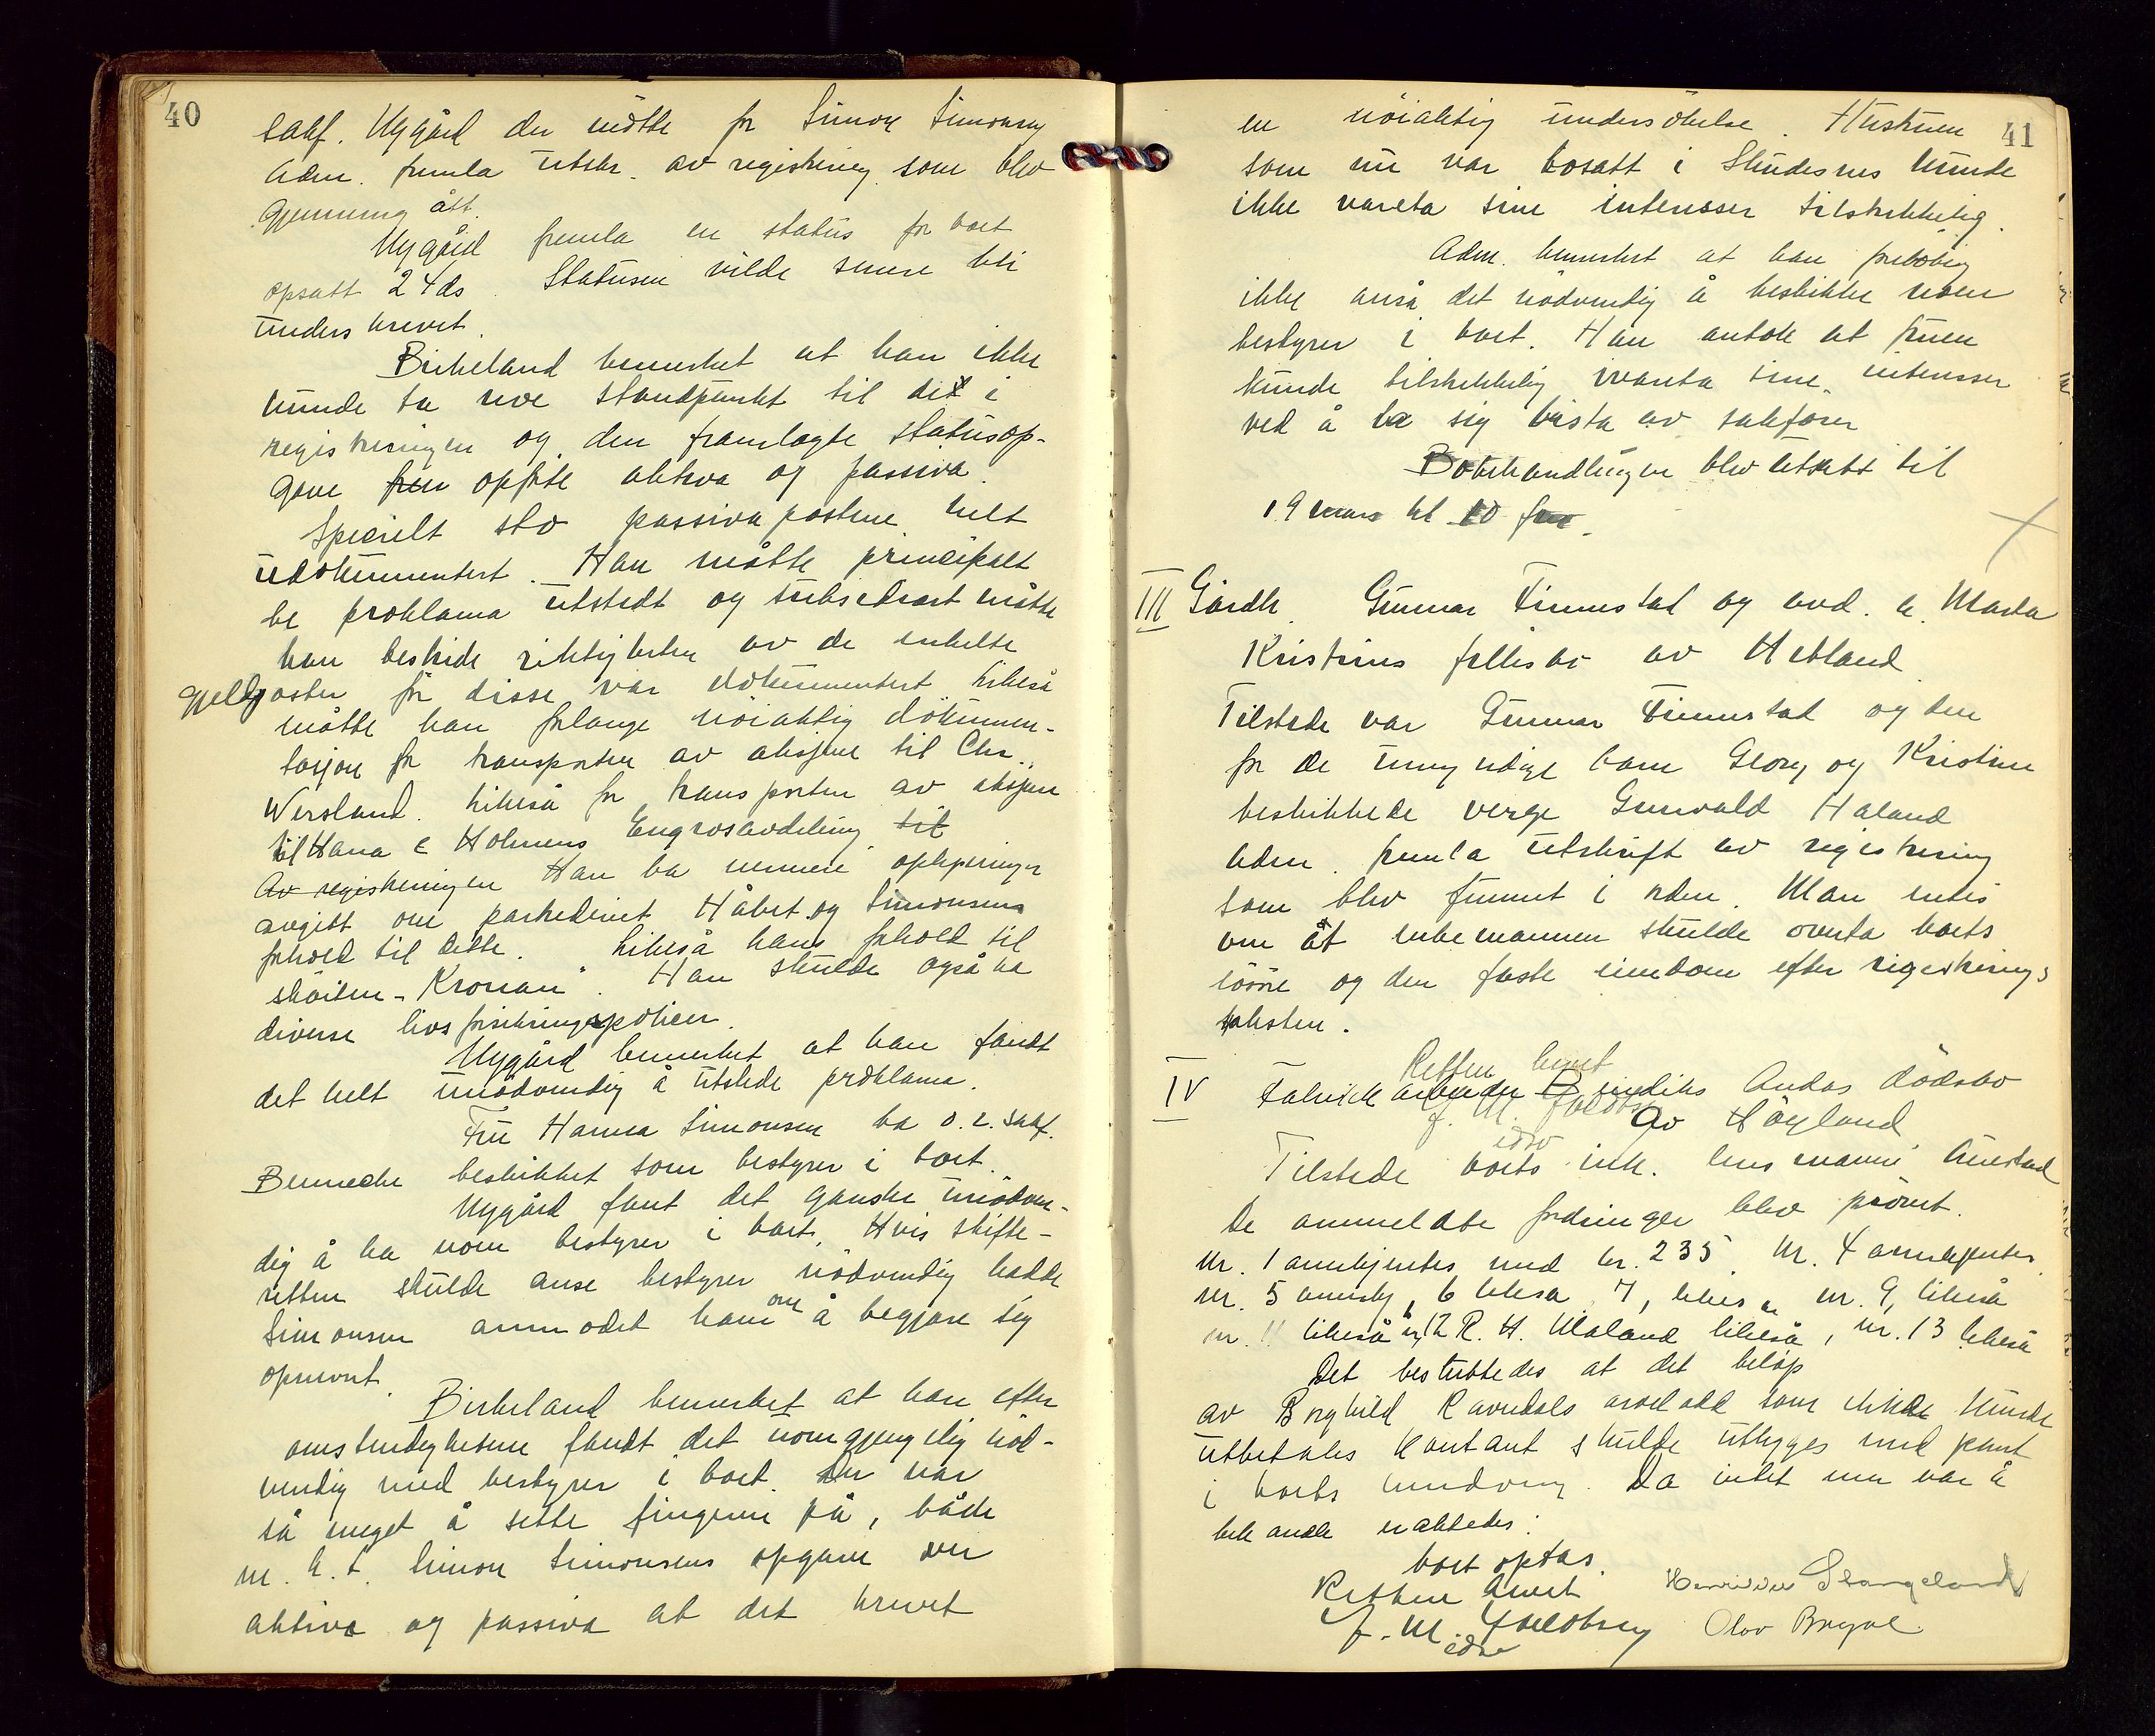 40
sakf. Nygård der møtte for Simon Simonsen
Adm. fremla utskr. av registrering som blev
gjennemgått.
Nygård fremla en status for boet
opsatt 24ds. Statusen vilde senere bli
underskrevet.
Birkeland bemerket at han ikke
kunde ta noe standpunkt til det i
registreringen og den framlagte statusop-
gave opførte aktiva og passiva.
Specielt sto passivapostene helt
udokumentert. Han måtte principalt
be proklama utstedt og subsidiært måtte
han bestride riktigheten av de enkelte
gjeldsposter før disse var dokumentert. Likeså
måtte han forlange nøiaktig dokumen-
tasjon for transporten av aksjene til Chr.
Wersland. Likeså for transporten av aksjene
til Hana & Holmens Engrosavdeling til
Av registreringen Han ba nermere oplysninger
avgitt om partrederiet Håbet og Simonsens
forhold til dette. Likeså hans forhold til
skøiten "Kronan". Han skulde også ha
diverse livsforsikringspoliser.
Nygård bemerket at han fandt
det helt unødvendig å utstede proklama.
Fru Hanna Simonsen ba o.r.sakf.
Benneche beskikket som bestyrer i boet.
Nygård fant det ganske unødven-
dig å ha noen bestyrer i boet. Hvis skifte-
retten skulde anse bestyrer nødvendig hadde
Simonsen anmodet ham om å begjære sig
opnevnt.
Birkeland bemerket at han efter
omstendighetene fandt det uomgjengelig nød-
vendig med bestyrer i boet. Der var
så meget å sette fingeren på, både
m.h.t. Simon Simonsens opgave over
aktiva og passiva at det krevet
41
en nøiaktig undersøkelse. Hustruen
som nu var bosatt i Skudesnes kunde
ikke vareta sine interesser tilstrekkelig.
Adm. bemerket at han foreløbig
ikke anså det nødvendig å beskikke noen
bestyrer i boet. Han antok at fruen
kunde tilstrekkelig ivareta sine interesser
ved å la sig bista av sakfører
Bobehandlingen blev utsatt til
19 mars kl 10 fm.
III Gårdb. Gunnar Finnestad og avd. h. Marta
Kristines fellesbo av Hetland
Tilstede var Gunnar Finnestad og den
for de umyndige barn Georg og Kristine
beskikkede verge Gunvald Haland
Adm. fremla utskrift av registrering
som blev funnet i orden. Man enedes
om at enkemannen skulde overta boets
løsøre og den faste eiendom efter registrerings
taksten.
Retten hevet
IV Fabrikkarbeider Andas dødsbo
av Høyland
Tilstede boets ink. lensmann Aurstad
De anmeldte fordringer blev prøvet.
Nr. 1 annerkjentes med kr. 235. Nr. 4 annerkjentes
nr. 5 annerkj, 6 likeså 7, likeså nr. 9, likeså
nr. 11 likeså nr 12 R. H. Ulaland likeså, nr. 13 likeså
Det besluttedes at det beløp
av Borghild Ravndals arvelodd som ikke kunde
utbetales kontant skulde utlegges med pant
i boets eiendom. Da intet mer var å
behandle eraktedes:
boet optas.
Retten hevet
J. M. Jacobsen
edsv
Olav Bryne